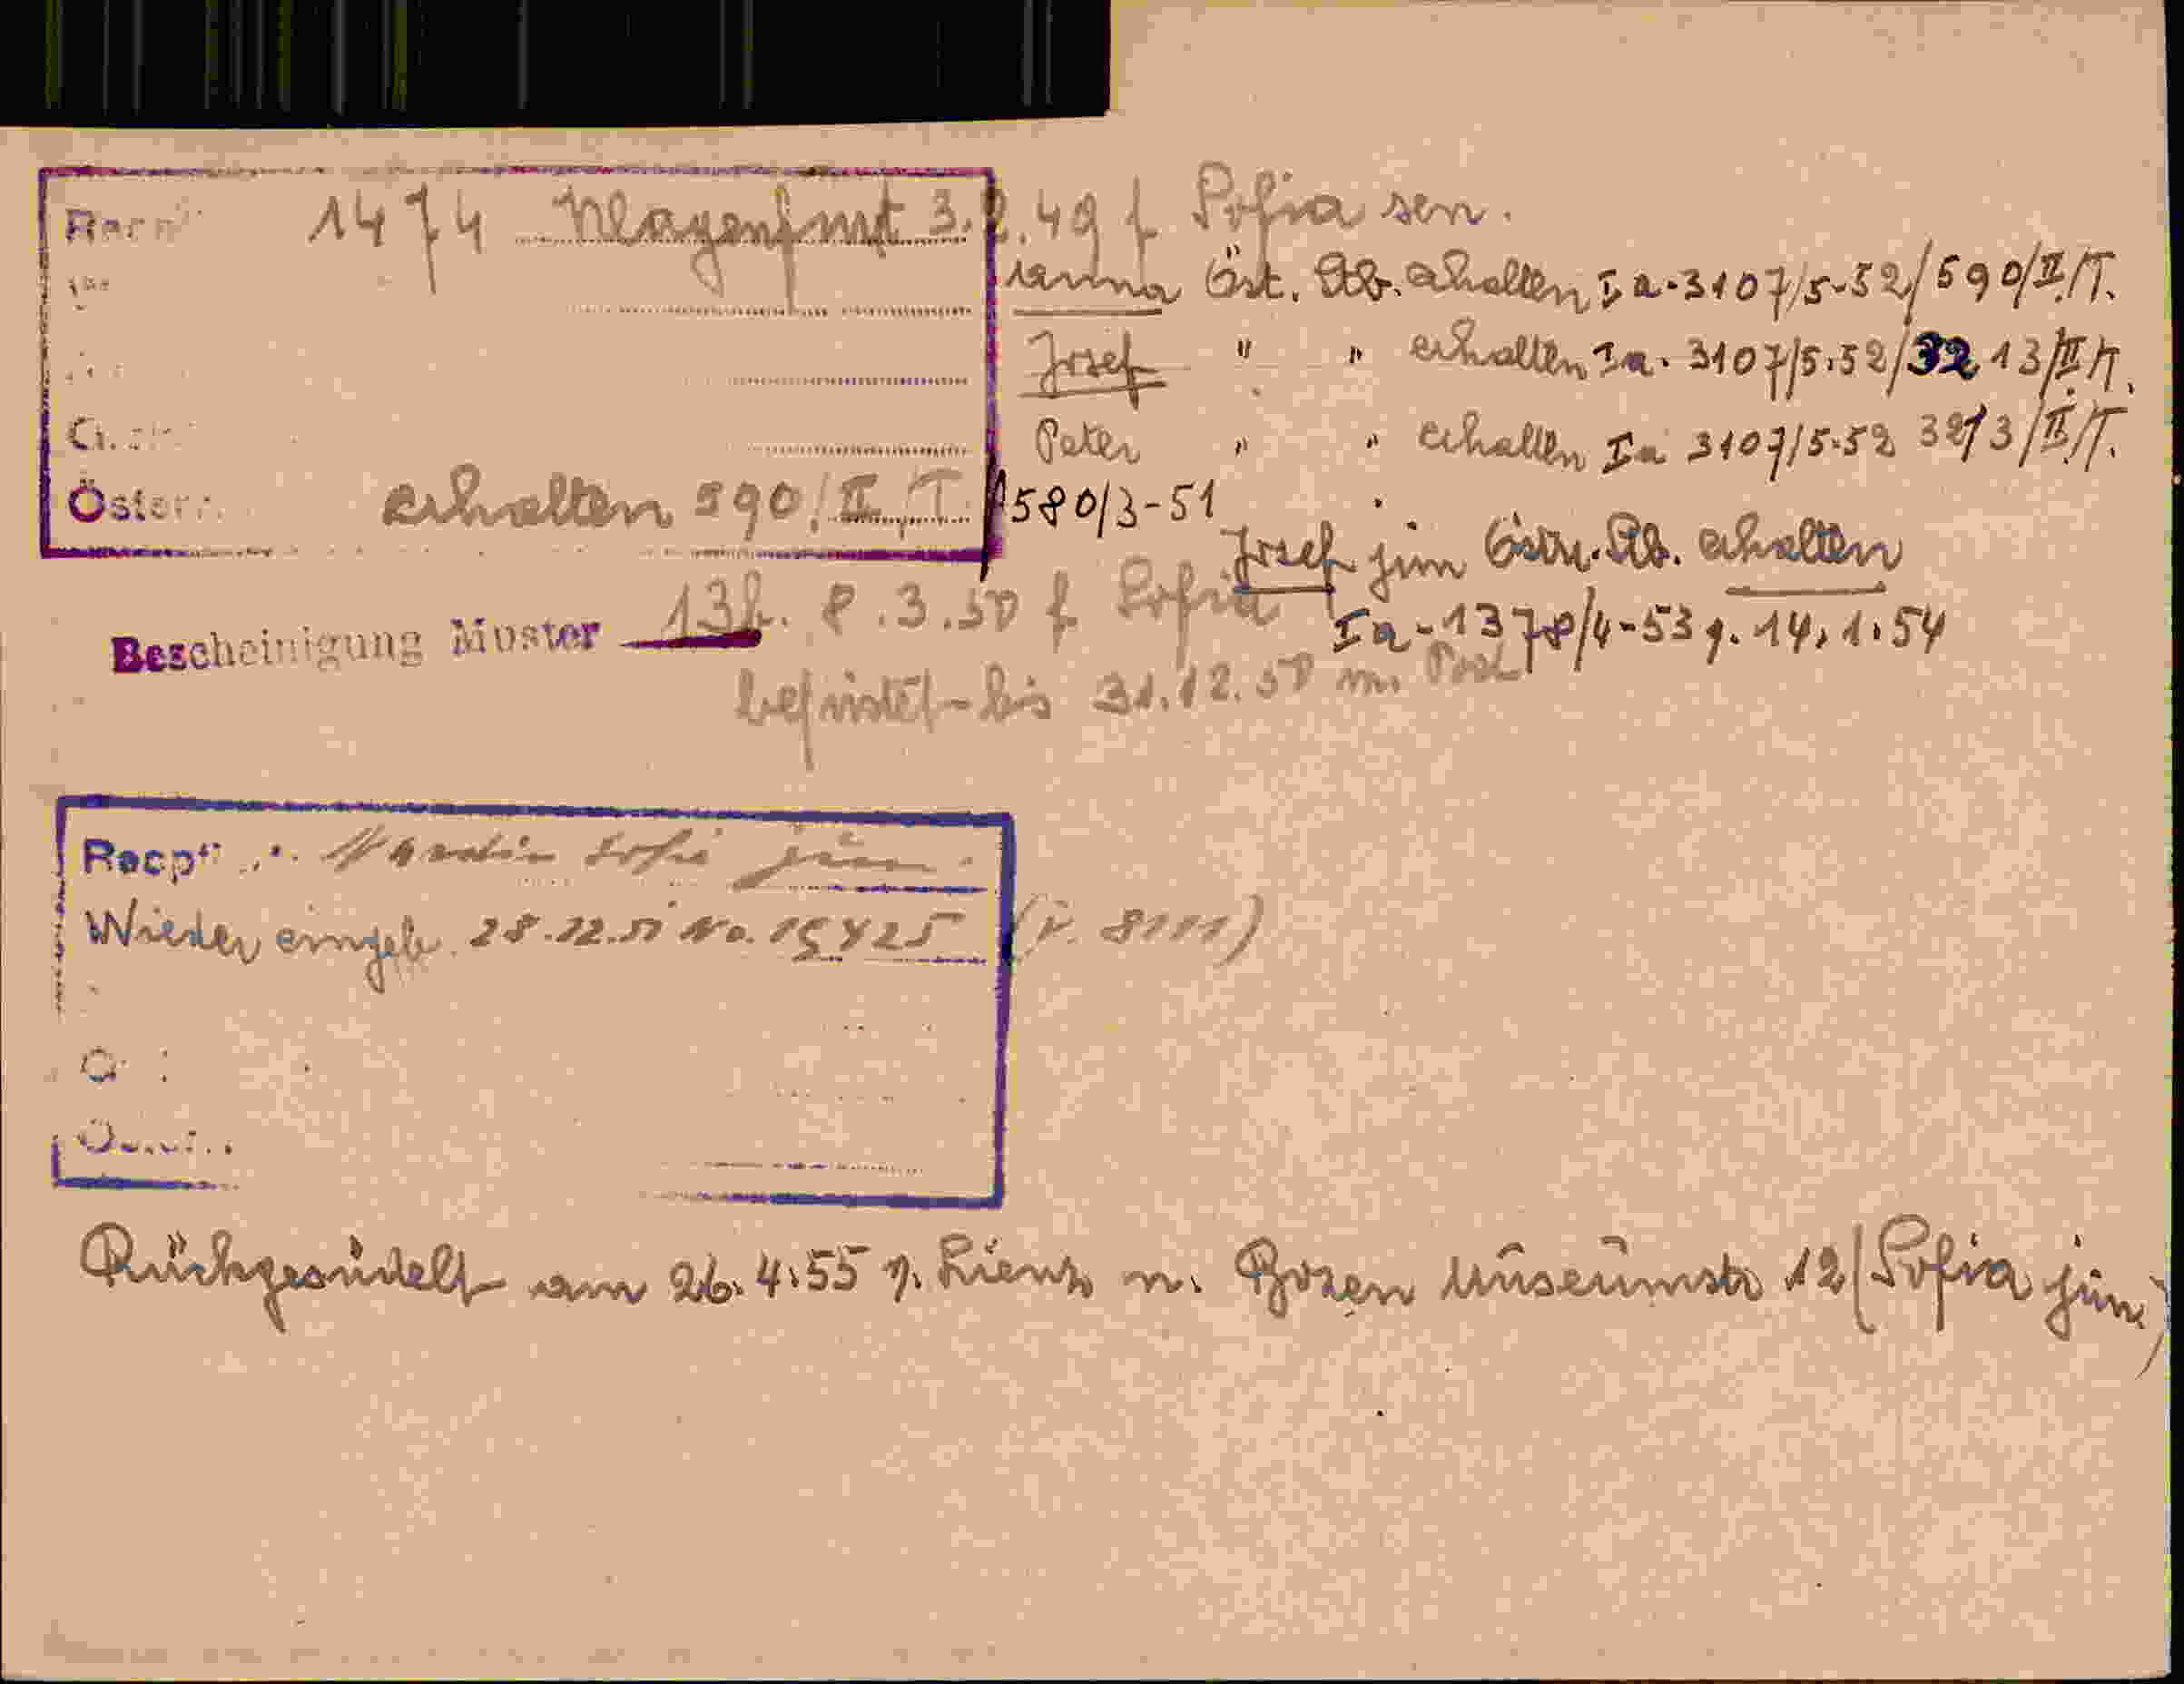 1474 Klagenfurt 3.2.49 f Sofia sen.
Öst. Stb. erhalten Ia-3107/5-52/590/II./T.
Josef " " erhalten Ia. 3107/5.52/3213/II/T.
Peter " " erhalten Ia 3107/5-52 3213/II./T.
Österr. erhalten 590/II/T. 580/3-51
Josef jun Östr. Stb. erhalten
Bescheinigung Muster 13h. 8.3.50 f Sofia
Ia-1378/4-53 g. 14.1.54
befristet bis 31.12.50
Sofie jun.
Wieder eingeb. 28.12.51 No. 15425 (v. 8111)
Rückgesiedelt am 26.4.55 v. Lienz n. Bozen Museumstr 12 (Sofia jun)